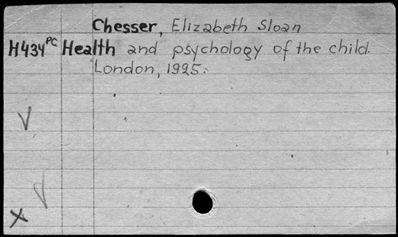 Chesser, Elizabeth Sloan
H434PC Health and psychology of the child.
London, 1925.